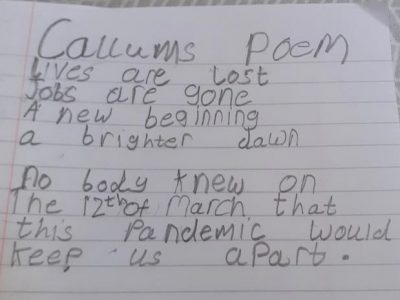 Callums Poem
Lives are lost
Jobs are gone
A new beginning
a brighter dawn
no body knew on
The 12th of March that
this Pandemic would
keep us apart.